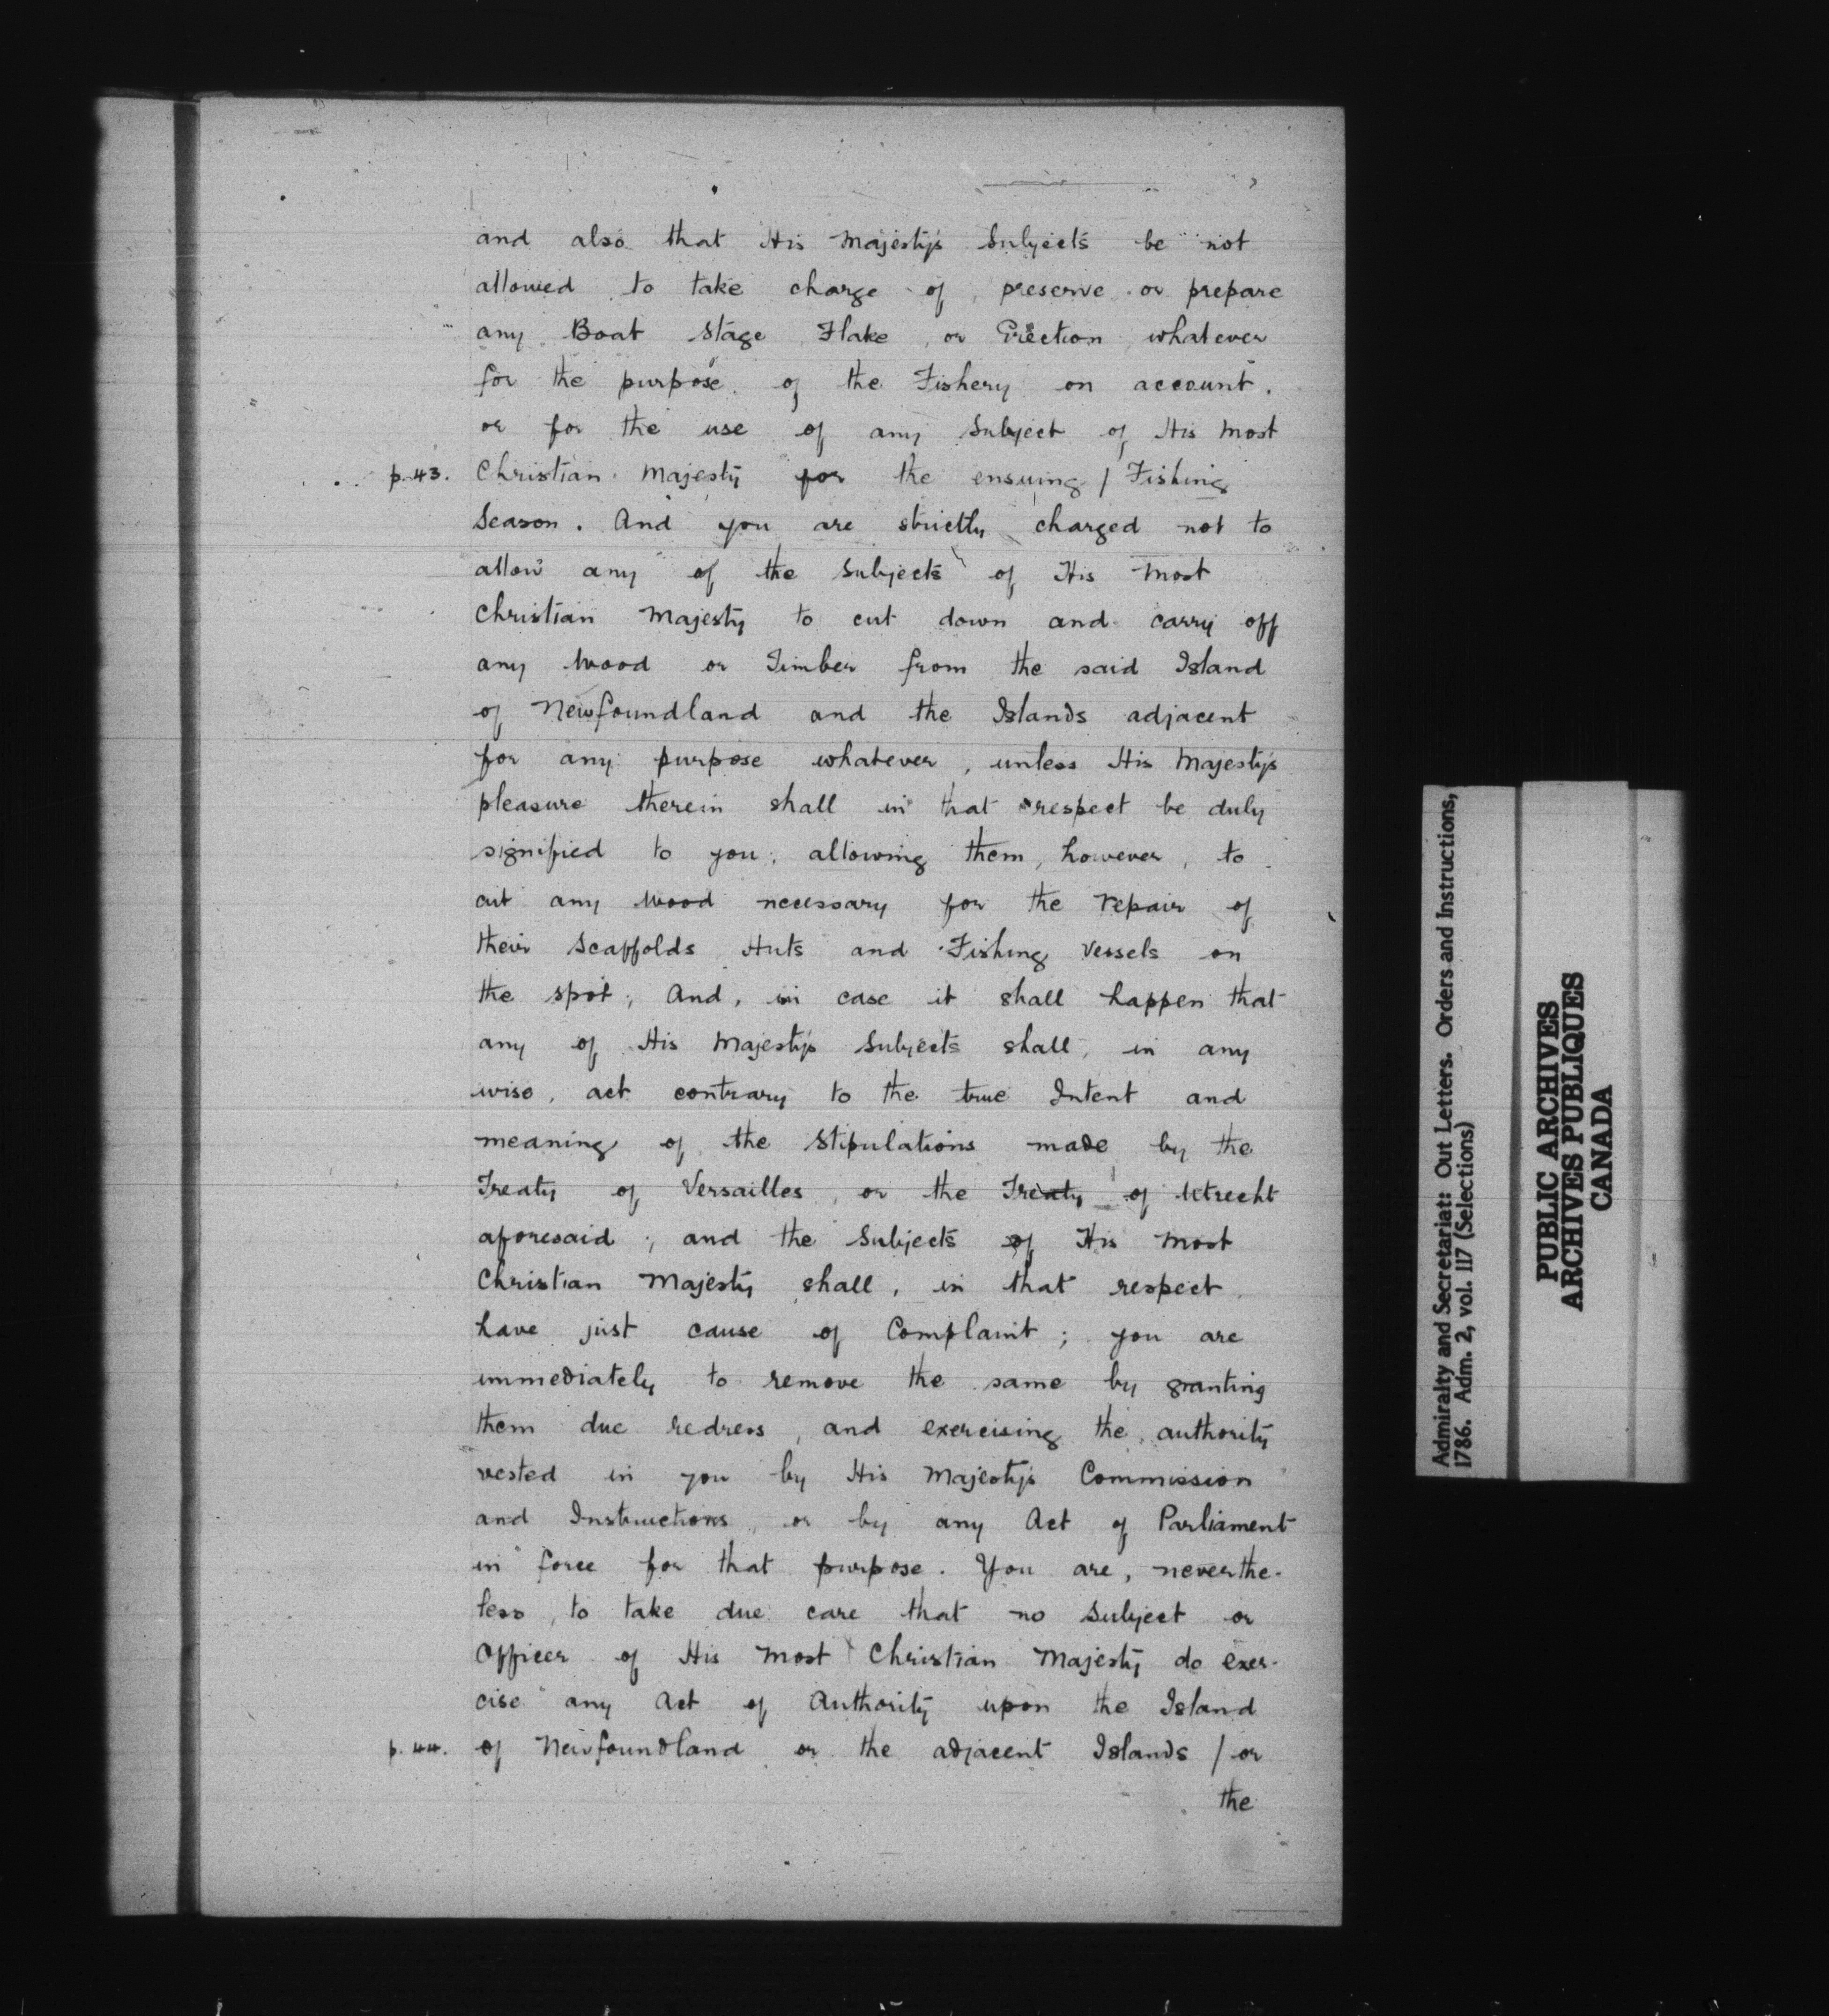 and also that His Majesty's Subjects be not
allowed to take charge of, preserve or prepare
any Boat Stage Flake, or Erection whatever
for the purpose of the Fishery on account,
or for the use of any Subject of His Most
p. 43. Christian Majesty for the ensuing / Fishing
Season. And you are strictly charged not to
allow any of the Subjects of His Most
Christian Majesty to cut down and carry off
any Wood or Timber from the said Island
of Newfoundland and the Islands adjacent
for any purpose whatever, unless His Majesty's
pleasure therein shall in that respect be duly
signified to you; allowing them, however, to
cut any Wood necessary for the repair of
their Scaffolds Huts and Fishing Vessels on
the spot; And, in case it shall happen that
any of His Majesty's Subjects shall, in any
wise, act contrary to the true Intent and
meaning of the Stipulations made by the
Treaty of Versailles, or the Treaty of Utrecht
aforesaid; and the Subjects of His Most
Christian Majesty shall, in that respect,
have just cause of Complaint; you are
immediately to remove the same by granting
them due redress, and exercising the authority
vested in you by His Majesty's Commission
and Instructions, or by any Act of Parliament
in force for that purpose. You are, neverthe-
less, to take due care that no Subject or
Officer of His Most Christian Majesty do exer-
cise any Act of Authority upon the Island
p. 44. of Newfoundland or the adjacent Islands / or
the
Admiralty and Secretariat: Out Letters. Orders and Instructions,
1786. Adm. 2, vol. 117 (Selections)
PUBLIC ARCHIVES
ARCHIVES PUBLIQUES
CANADA